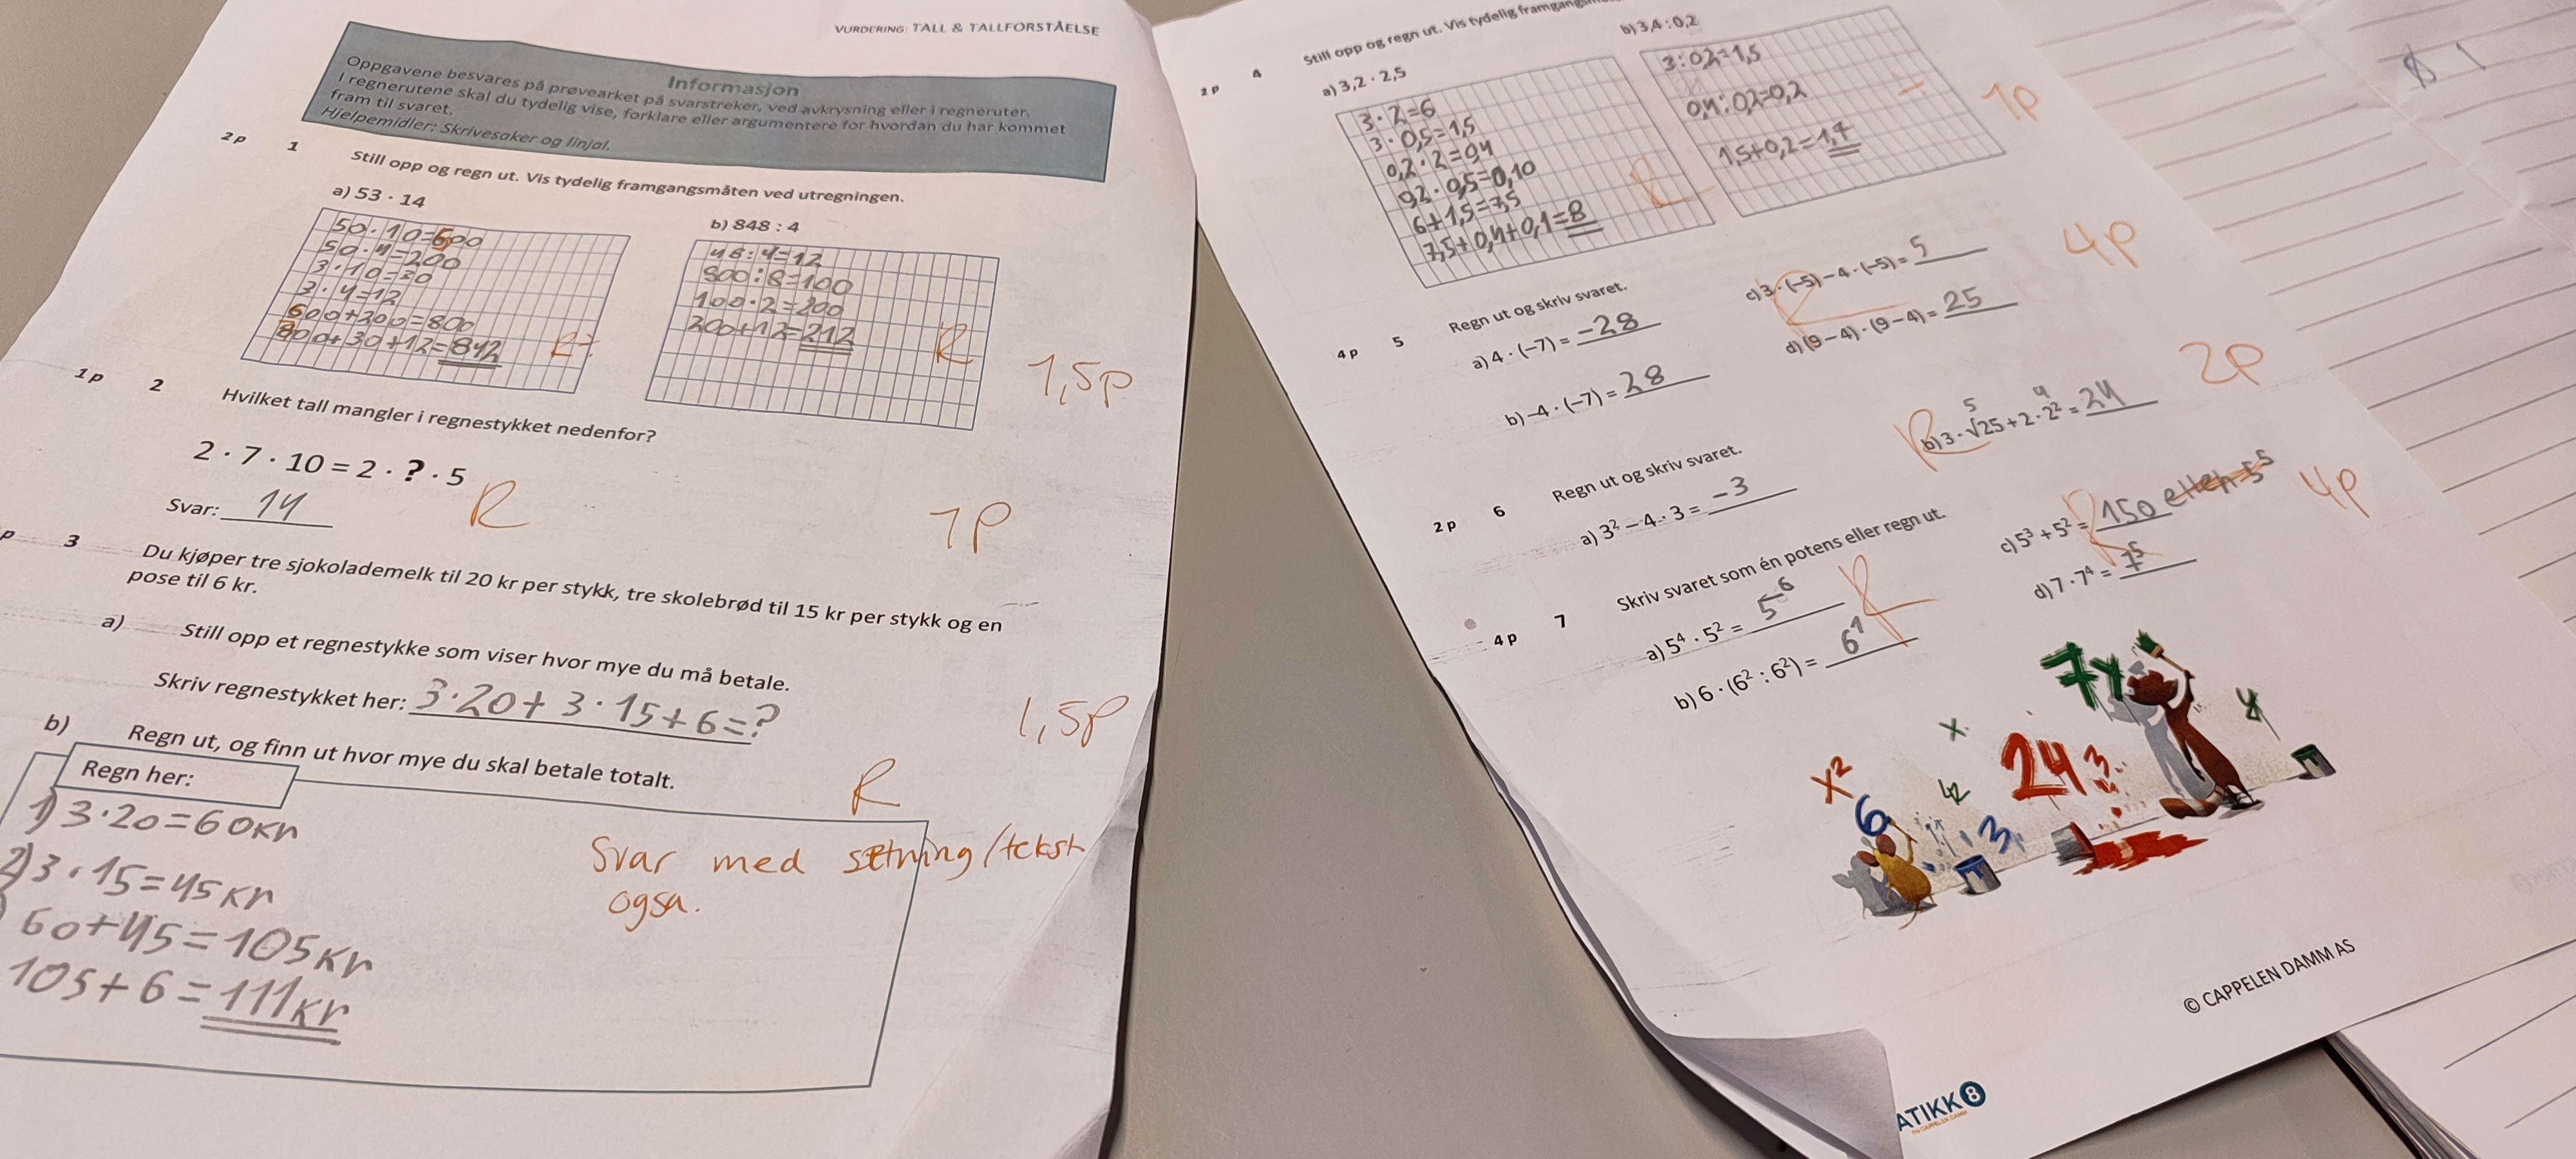 VURDERING: TALL & TALLFORSTÅELSE
Informasjon
Oppgavene besvares på prøvearket på svarstreker, ved avkrysning eller i regneruter.
I regnerutene skal du tydelig vise, forklare eller argumentere for hvordan du har kommet
fram til svaret.
Hjelpemidler: Skrivesaker og linjal.
2 p 1 Still opp og regn ut. Vis tydelig framgangsmåten ved utregningen.
a) 53 · 14
50·10=600
50·4=200
3·10=30
3·4=12
600+200=800
800+30+12=842
b) 848 : 4
48:4=12
800:8=100
100·2=200
200+12=212
R
1,5p
1 p 2 Hvilket tall mangler i regnestykket nedenfor?
2 · 7 · 10 = 2 · ? · 5
Svar: 14
R
1P
p 3 Du kjøper tre sjokolademelk til 20 kr per stykk, tre skolebrød til 15 kr per stykk og en
pose til 6 kr.
a) Still opp et regnestykke som viser hvor mye du må betale.
Skriv regnestykket her: 3·20+3·15+6=?
1,5P
b) Regn ut, og finn ut hvor mye du skal betale totalt.
R
Regn her:
1) 3·20=60kr
2) 3·15=45kr
60+45=105kr
105+6=111kr
Svar med setning/tekst
også.
2 p 4 Still opp og regn ut. Vis tydelig
a) 3,2 · 2,5
3·2=6
3·0,5=1,5
0,2·2=0,4
0,2·0,5=0,10
6+1,5=7,5
7,5+0,4+0,1=8
R
b) 3,4 : 0,2
3:0,2=1,5
0,4:0,2=0,2
1,5+0,2=1,7
1p
4 p 5 Regn ut og skriv svaret.
a) 4 · (−7) = -28
b) −4 · (−7) = 28
c) 3 · (−5) − 4 · (−5) = 5
d) (9 − 4) · (9 − 4) = 25
R
4p
2 p 6 Regn ut og skriv svaret.
a) 3² − 4 · 3 = -3
b) 3 · √25 + 2 · 2² = 24
5 4
R
2p
4 p 7 Skriv svaret som én potens eller regn ut.
a) 5⁴ · 5² = 5⁶
b) 6 · (6² : 6²) = 6¹
R
c) 5³ + 5² = 150 eller 5⁵
d) 7 · 7⁴ = 7⁵
R
4p
X²
6
x
42
3
24
3
7y
y
© CAPPELEN DAMM AS
ATIKK 8